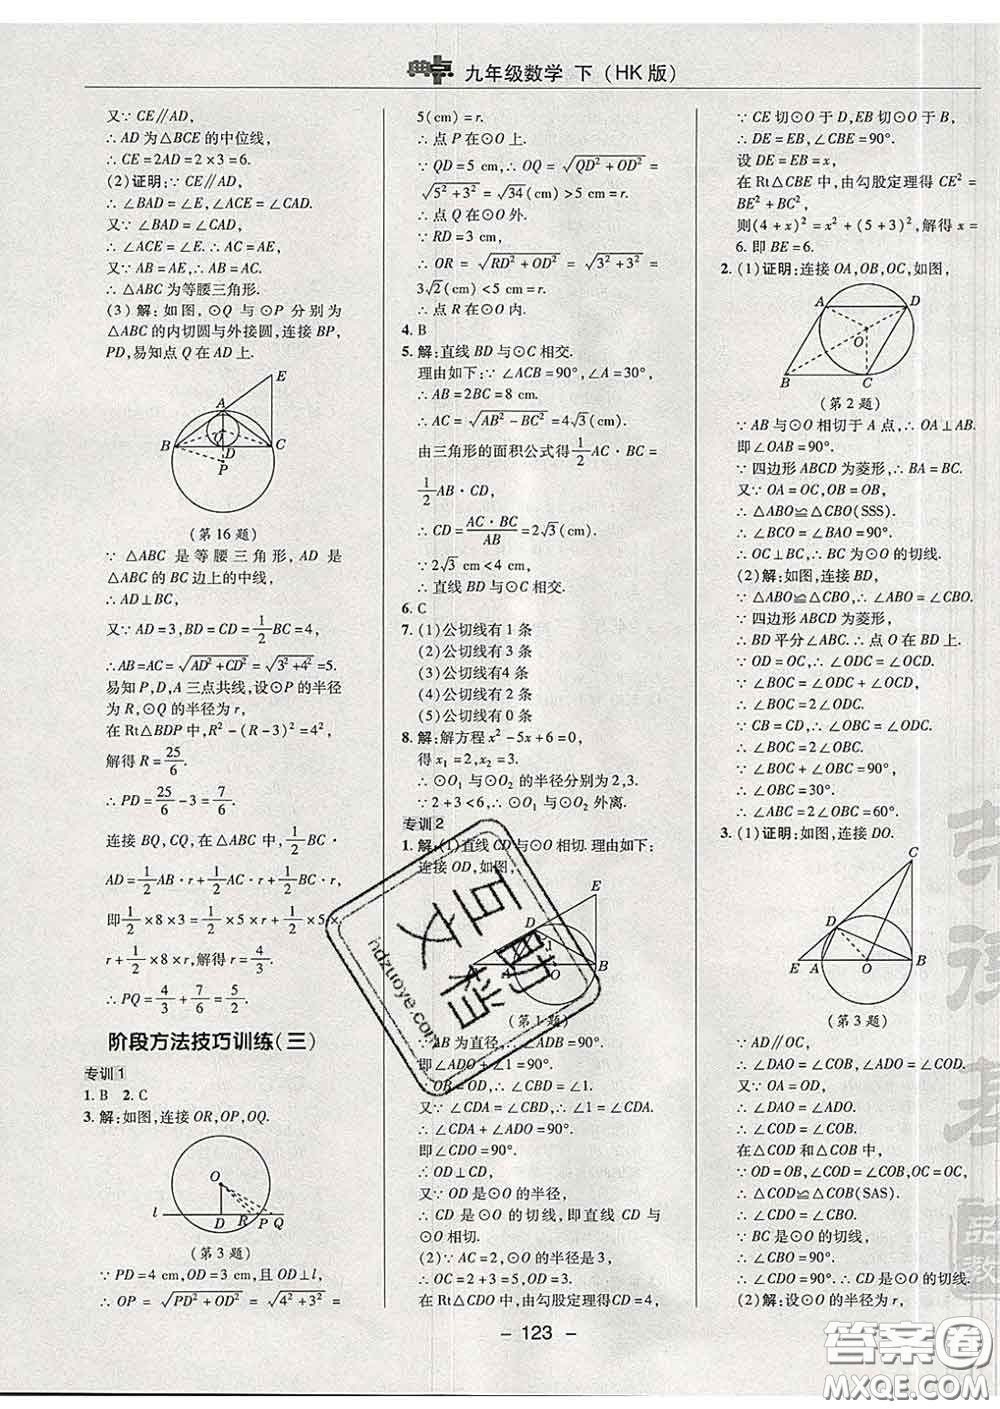 典点 九年级数学 下(HK版)
又∵CE∥AD,
∴AD为△BCE的中位线,
∴CE=2AD=2×3=6.
(2)证明:∵CE∥AD,
∴∠BAD=∠E,∠ACE=∠CAD.
又∵∠BAD=∠CAD,
∴∠ACE=∠E.∴AC=AE,
又∵AB=AE,∴AB=AC.
∴△ABC为等腰三角形.
(3)解:如图,⊙Q与⊙P分别为
△ABC的内切圆与外接圆,连接BP,
PD,易知点Q在AD上.
E
A
B
D
C
P
(第16题)
∵△ABC是等腰三角形,AD是
△ABC的BC边上的中线,
∴AD⊥BC,
又∵AD=3,BD=CD=1/2BC=4,
∴AB=AC=√(AD²+CD²)=√(3²+4²)=5.
易知P,D,A三点共线,设⊙P的半径
为R,⊙Q的半径为r,
在Rt△BDP中,R²-(R-3)²=4²,
解得R=25/6.
∴PD=25/6-3=7/6.
连接BQ,CQ,在△ABC中,1/2BC·
AD=1/2AB·r+1/2AC·r+1/2BC·r,
即1/2×8×3=1/2×5×r+1/2×5×
r+1/2×8×r,解得r=4/3.
∴PQ=4/3+7/6=5/2.
阶段方法技巧训练(三)
专训1
1. B 2. C
3. 解:如图,连接OR,OP,OQ.
O
l
D
R
P
Q
(第3题)
∵PD=4 cm,OD=3 cm,且OD⊥l,
∴OP=√(PD²+OD²)=√(4²+3²)=
5(cm)=r.
∴点P在⊙O上.
∵QD=5 cm,∴OQ=√(QD²+OD²)=
√(5²+3²)=√34(cm)>5 cm=r.
∴点Q在⊙O外.
∵RD=3 cm,
∴OR=√(RD²+OD²)=√(3²+3²)=
3√2(cm)<5 cm=r.
∴点R在⊙O内.
4. B
5. 解:直线BD与⊙C相交.
理由如下:∵∠ACB=90°,∠A=30°,
∴AB=2BC=8 cm.
∴AC=√(AB²-BC²)=4√3(cm).
由三角形的面积公式得1/2AC·BC=
1/2AB·CD,
∴CD=AC·BC/AB=2√3(cm).
∵2√3 cm<4 cm,
∴直线BD与⊙C相交.
6. C
7. (1)公切线有1条
(2)公切线有3条
(3)公切线有4条
(4)公切线有2条
(5)公切线有0条
8. 解:解方程x²-5x+6=0,
得x₁=2,x₂=3.
∴⊙O₁与⊙O₂的半径分别为2,3.
∵2+3<6,∴⊙O₁与⊙O₂外离.
专训2
1. 解:(1)直线CD与⊙O相切.理由如下:
连接OD,如图,
E
D
B
(第1题)
∵AB为直径,∴∠ADB=90°.
即∠ADO+∠1=90°.
∵OB=OD,∴∠CBD=∠1.
又∵∠CDA=∠CBD,∴∠1=∠CDA.
∴∠CDA+∠ADO=90°.
即∠CDO=90°.
∴OD⊥CD,
又∵OD是⊙O的半径,
∴CD是⊙O的切线,即直线CD与
⊙O相切.
(2)∵AC=2,⊙O的半径是3,
∴OC=2+3=5,OD=3.
在Rt△CDO中,由勾股定理得CD=4,
∵CE切⊙O于D,EB切⊙O于B,
∴DE=EB,∠CBE=90°.
设DE=EB=x,
在Rt△CBE中,由勾股定理得CE²=
BE²+BC²,
则(4+x)²=x²+(5+3)²,解得x=
6.即BE=6.
2. (1)证明:连接OA,OB,OC,如图,
A
D
O
B
C
(第2题)
∵AB与⊙O相切于A点,∴OA⊥AB.
即∠OAB=90°.
∵四边形ABCD为菱形,∴BA=BC.
又∵OA=OC,OB=OB,
∴△ABO≌△CBO(SSS).
∴∠BCO=∠BAO=90°.
∴OC⊥BC,∴BC为⊙O的切线.
(2)解:如图,连接BD,
∵△ABO≌△CBO,∴∠ABO=∠CBO.
∵四边形ABCD为菱形,
∴BD平分∠ABC.∴点O在BD上.
∵OD=OC,∴∠ODC=∠OCD.
∵∠BOC=∠ODC+∠OCD,
∴∠BOC=2∠ODC.
∵CB=CD,∴∠OBC=∠ODC.
∴∠BOC=2∠OBC.
∵∠BOC+∠OBC=90°,
∴∠OBC=30°.
∴∠ABC=2∠OBC=60°.
3. (1)证明:如图,连接DO.
C
D
E
A
O
B
(第3题)
∵AD∥OC,
∴∠DAO=∠COB,∠ADO=∠COD.
又∵OA=OD,
∴∠DAO=∠ADO.
∴∠COD=∠COB.
在△COD和△COB中,
∵OD=OB,∠COD=∠COB,OC=OC,
∴△COD≌△COB(SAS).
∴∠CDO=∠CBO.
∵BC是⊙O的切线,
∴∠CBO=90°.
∴∠CDO=90°.∴CD是⊙O的切线.
(2)解:设⊙O的半径为r,
- 123 -
互助文档
hdzuoye.com
答案圈
MXQE.COM